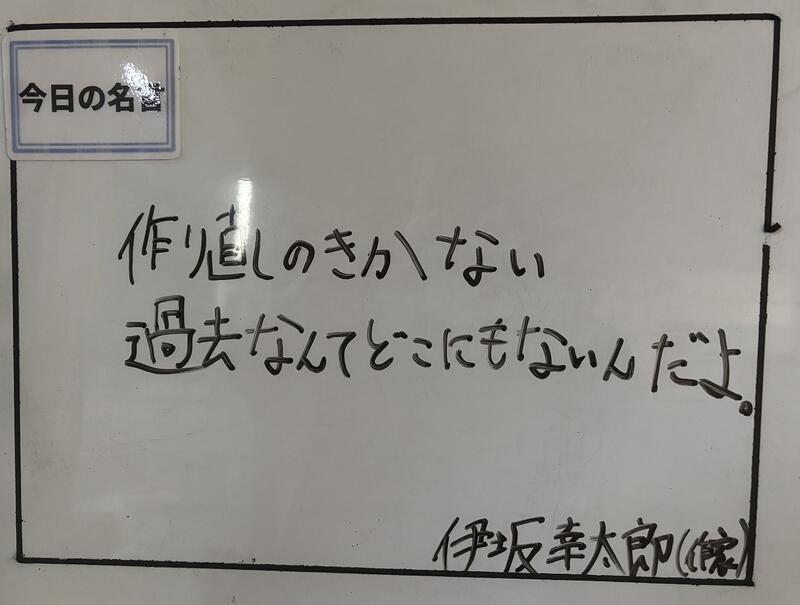 今日の名言
作り直しのきかない
過去なんてどこにもないんだよ。
伊坂幸太郎(作家)